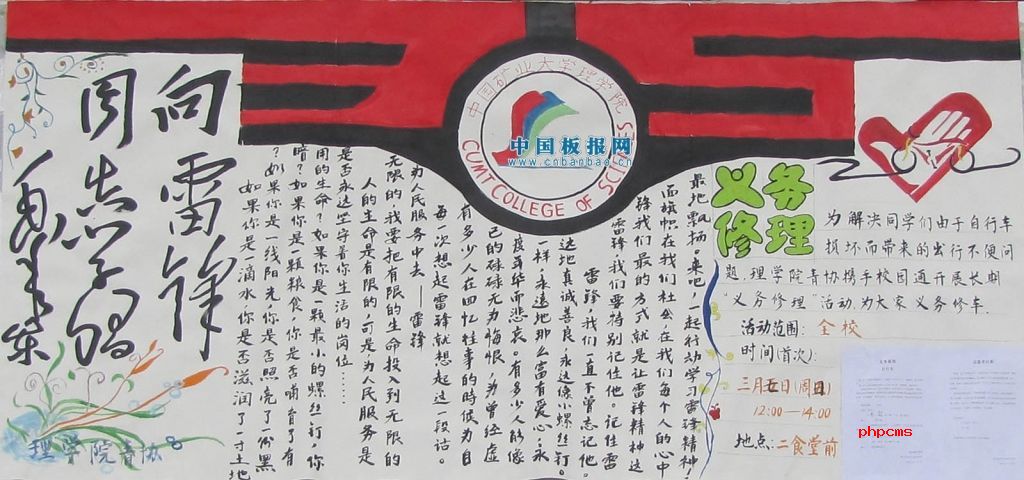 向雷锋
同志学习
毛泽东
理学院青协
中国矿业大学理学院
CUMT COLLEGE OF SCIENCES
中国板报网
www.cnbanbao.cn
如果你是一滴水，你是否滋润了一寸土地
？如果你是一线阳光，你是否照亮了一份黑
暗？如果你是一颗粮食，你是否哺育了有
用的生命？如果你是一颗最小的螺丝钉，你
是否永远坚守着你生活的岗位……
人的生命是有限的，可是，为人民服务是
无限的，我要把有限的生命投入到无限的
为人民服务中去——雷锋
每一次想起雷锋就想起这一段话。
有多少人在回忆往事的时候为自
己的碌碌无为悔恨，为曾经虚
度年华而悲哀。有多少人能像
一样，永远地那么富有爱心，永
远地真诚善良，永远像小螺丝钉。
雷锋，我们一直不曾忘记他。
雷锋，我们要特别记住他。记住雷
锋我们最的方式就是让雷锋精神这
面旗帜在我们社会，在我们每个人的心中
最地飘扬。来吧，一起行动学习雷锋精神！
义务
修理
为解决同学们由于自行车
损坏而带来的出行不便问
题，理学院青协携手校园通开展长期
"义务修理"活动，为大家义务修车.
活动范围：全校
时间(首次)：
三月五日(周日)
12:00—14:00
地点：二食堂前
phpcms